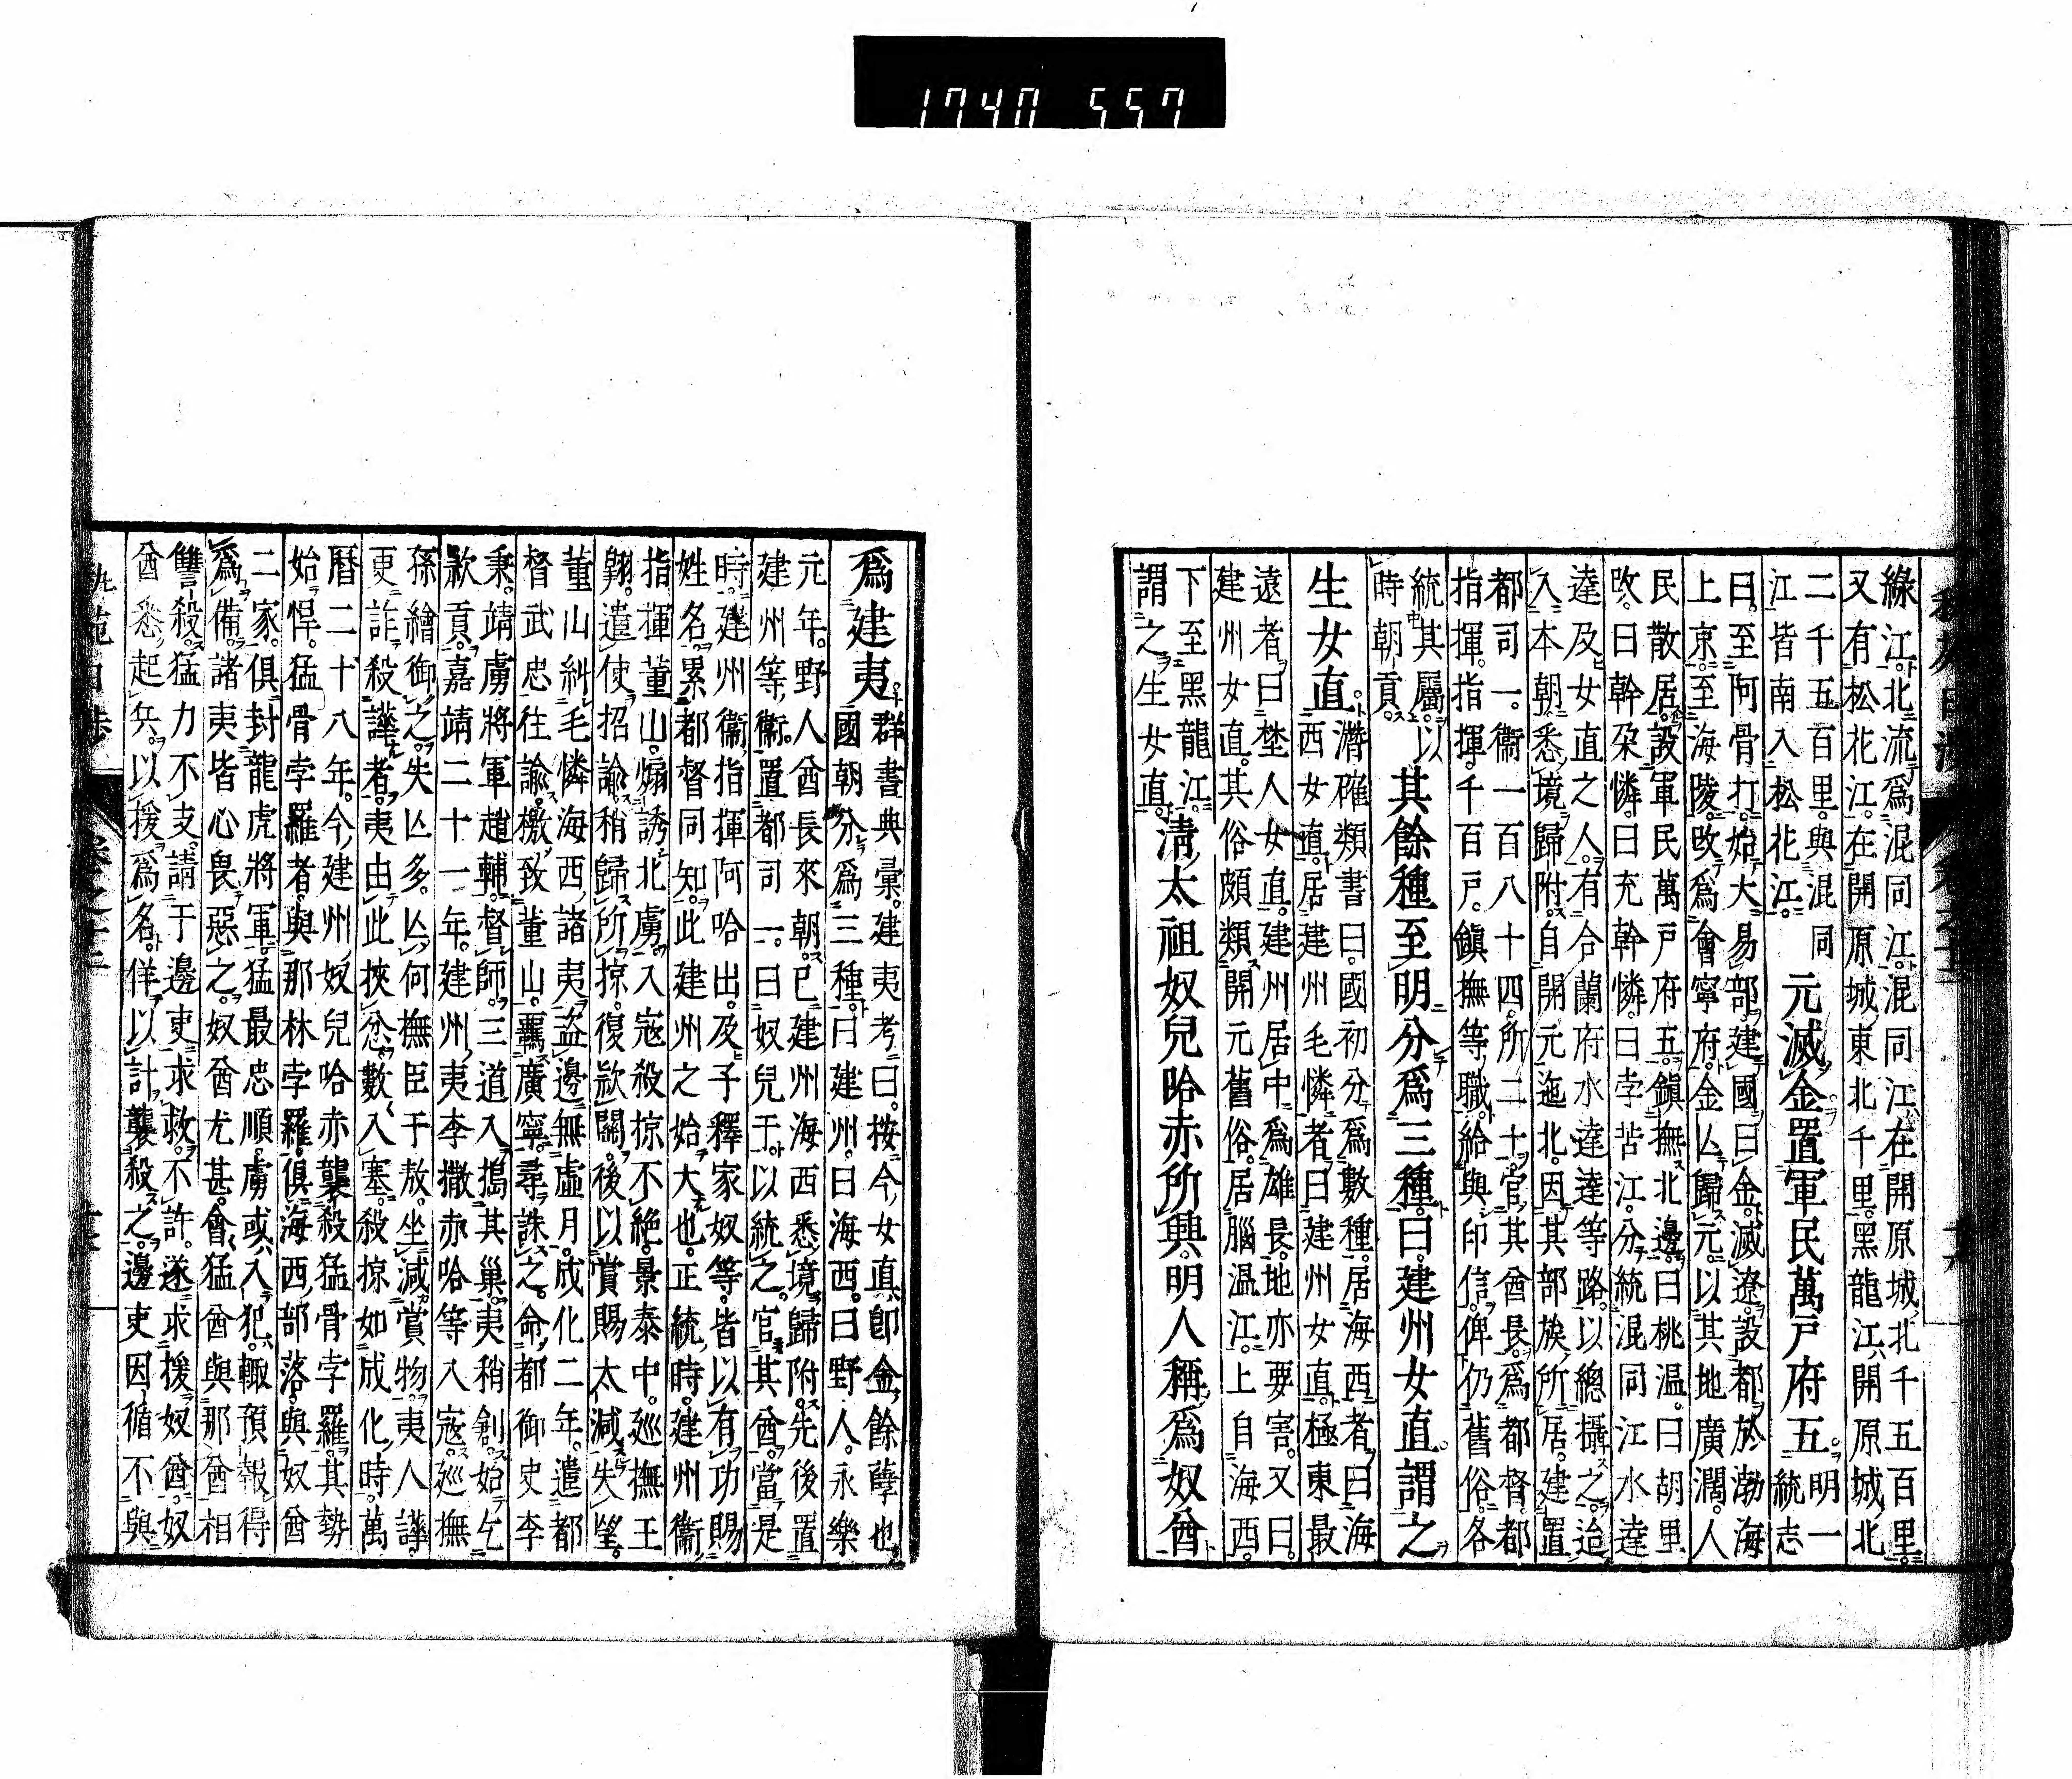 1740 557
綠江北流爲混同江混同江在開原城北千五百里
又有松花江在開原城東北千里黑龍江開原城北
二千五百里與混同
江皆南入松花江
元滅金置軍民萬戸府五
明一
統志
曰至阿骨打始大易部建國曰金滅遼設都於渤海
上京至海陵改爲會寧府金亾歸元以其地廣濶人
民散居設軍民萬戸府五鎭撫北邊曰桃温曰胡里
改曰幹朶憐曰充幹憐曰孛苦江分統混同江水達
達及女直之人有合蘭府水達達等路以總攝之迨
入本朝悉境歸附自開元迤北因其部族所居建置
都司一衞一百八十四所二十官其酋長爲都督都
指揮指揮千百戸鎭撫等職給與印信俾仍舊俗各
統其屬以
時朝貢
其餘種至明分爲三種曰建州女直謂之
生女直
濳確類書曰國初分爲數種居海西者曰海
西女直居建州毛憐者曰建州女直極東最
遠者曰埜人女直建州居中爲雄長地亦要害又曰
建州女直其俗頗類開元舊俗居腦温江上自海西
下至黑龍江
謂之生女直
淸太祖奴兒哈赤所興明人稱爲奴酋
爲建夷
群書典彙建夷考曰按今女直卽金餘孽也
國朝分爲三種曰建州曰海西曰野人永樂
元年野人酋長來朝已建州海西悉境歸附先後置
建州等衞置都司一曰奴兒干以統之官其酋當是
時建州衞指揮阿哈出及子釋家奴等皆以有功賜
姓名累都督同知此建州之始大也正統時建州衞
指揮董山煽誘北虜入寇殺掠不絶景泰中巡撫王
翺遣使招諭稍歸所掠復欵關後以賞賜太減失望
董山糾毛憐海西諸夷盜邊無虛月成化二年遣都
督武忠往諭檄致董山羈廣寧尋誅之命都御史李
秉靖虜將軍趙輔督師三道入搗其巢夷稍創始乞
款貢嘉靖二十一年建州夷李撒赤哈等入寇巡撫
孫繪御之失亾多亾何撫臣于敖坐減賞物夷人譁
更詐殺譁者夷由此挾忿數入塞殺掠如成化時萬
曆二十八年今建州奴兒哈赤襲殺猛骨孛羅其勢
始悍猛骨孛羅者與那林孛羅俱海西部落與奴酋
二家俱封龍虎將軍猛最忠順虜或入犯輒預報得
爲備諸夷皆心畏惡之奴酋尤甚會猛酋與那酋相
讐殺猛力不支請于邊吏求救不許遂求援奴酋奴
酋悉起兵以援爲名佯以計襲殺之邊吏因循不與